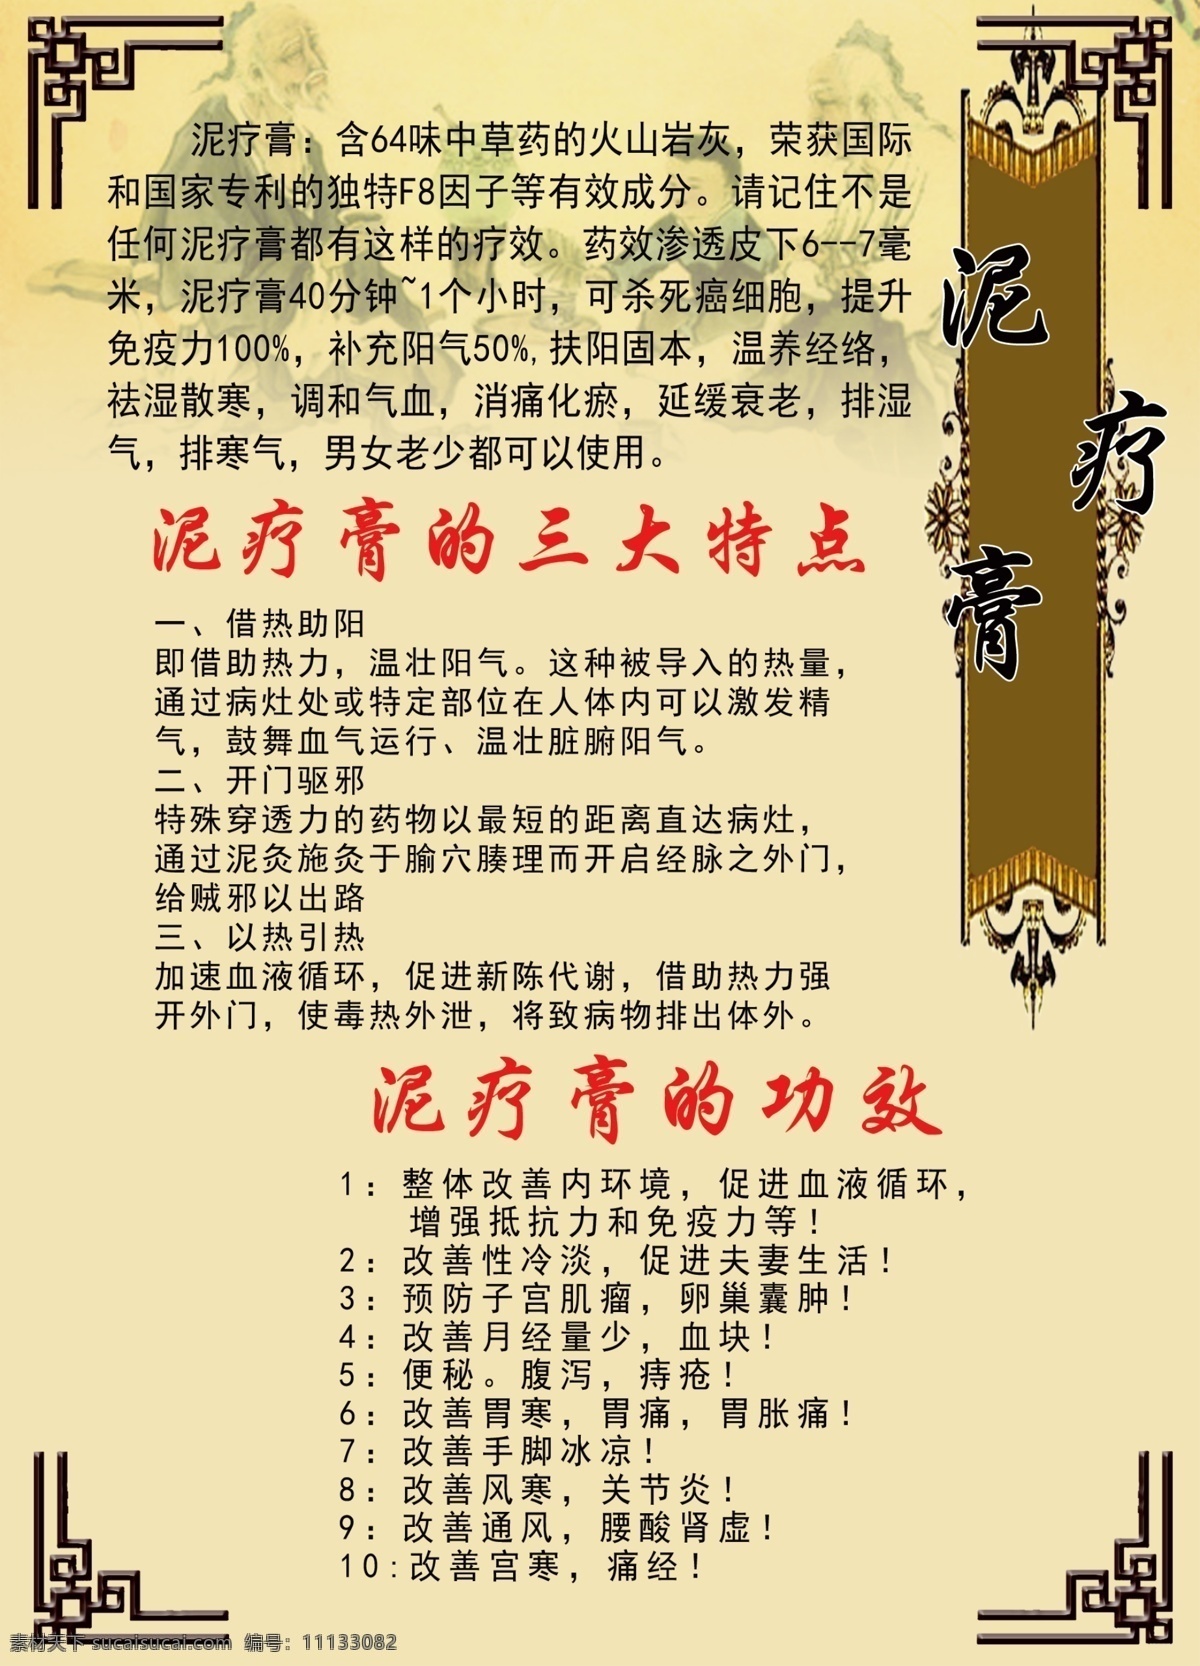 泥疗膏
泥疗膏：含64味中草药的火山岩灰，荣获国际
和国家专利的独特F8因子等有效成分。请记住不是
任何泥疗膏都有这样的疗效。药效渗透皮下6--7毫
米，泥疗膏40分钟~1个小时，可杀死癌细胞，提升
免疫力100%，补充阳气50%,扶阳固本，温养经络，
祛湿散寒，调和气血，消痛化瘀，延缓衰老，排湿
气，排寒气，男女老少都可以使用。
泥疗膏的三大特点
一、借热助阳
即借助热力，温壮阳气。这种被导入的热量，
通过病灶处或特定部位在人体内可以激发精
气，鼓舞血气运行、温壮脏腑阳气。
二、开门驱邪
特殊穿透力的药物以最短的距离直达病灶，
通过泥灸施灸于腧穴腠理而开启经脉之外门，
给贼邪以出路
三、以热引热
加速血液循环，促进新陈代谢，借助热力强
开外门，使毒热外泄，将致病物排出体外。
泥疗膏的功效
1：整体改善内环境，促进血液循环，
增强抵抗力和免疫力等！
2：改善性冷淡，促进夫妻生活！
3：预防子宫肌瘤，卵巢囊肿！
4：改善月经量少，血块！
5：便秘。腹泻，痔疮！
6：改善胃寒，胃痛，胃胀痛！
7：改善手脚冰凉！
8：改善风寒，关节炎！
9：改善通风，腰酸肾虚！
10:改善宫寒，痛经！
素材天下 sucaisucai.com 编号：11133082